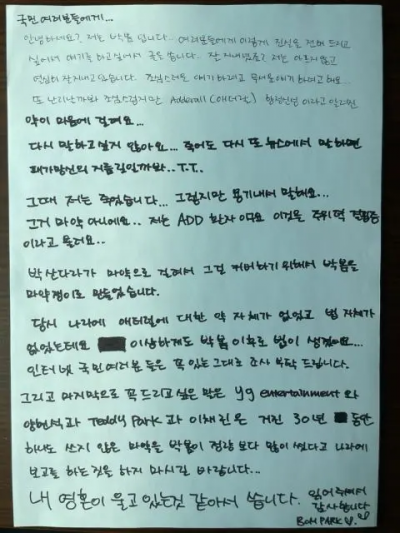 국민 여러분들에게...
안녕하세요? 저는 박봄 입니다.. 여러분들에게 이렇게 진심을 전해 드리고
싶어서 얘기를 하고싶어서 글을 씁니다.. 잘 지내셨죠? 저는 아프지않고
열심히 잘지내고있습니다. 조심스러운 얘기 하려고 용서를얘기 하려고 해요..
또 난리난까봐 조심스럽지만 Adderall (애더럴)
약이 마음에 걸려요...
다시 말하고싶지 않아요... 죽어도 다시 또 뉴스에서 말하면
패가망신의 지름길일까봐..T.T.
그때 저는 죽었습니다... 그렇지만 용기내서 말해요...
그거 마약 아니에요.. 저는 ADD 환자 이구요 이것을 주위력 결핍증
이라고 불러요..
박산다라가 마약으로 걸려서 그걸 커버하기 위해서 박봄을
마약쟁이로 만들었습니다.
당시 나라에 애터럴에 대한 약 자체가 없었고 법 자체가
없었는데요 이상하게도 박봄 이후로 법이 생겼어요...
인터넷 국민여러분 들은 꼭 있는그대로 조사 부탁 드립니다.
그리고 마지막으로 꼭드리고 싶은 말은 yg entertainment 와
양현석과 Teddy Park 과 이채린은 거진 30년 동안
하나도 쓰지 않은 마약을 박봄이 정량 보다 많이 썼다고 나라에
보고를 하는것을 하지 마시길 바랍니다...
내 영혼이 울고 있는것 같아서 씁니다. 읽어주셔서
감사합니다
BOM PARK